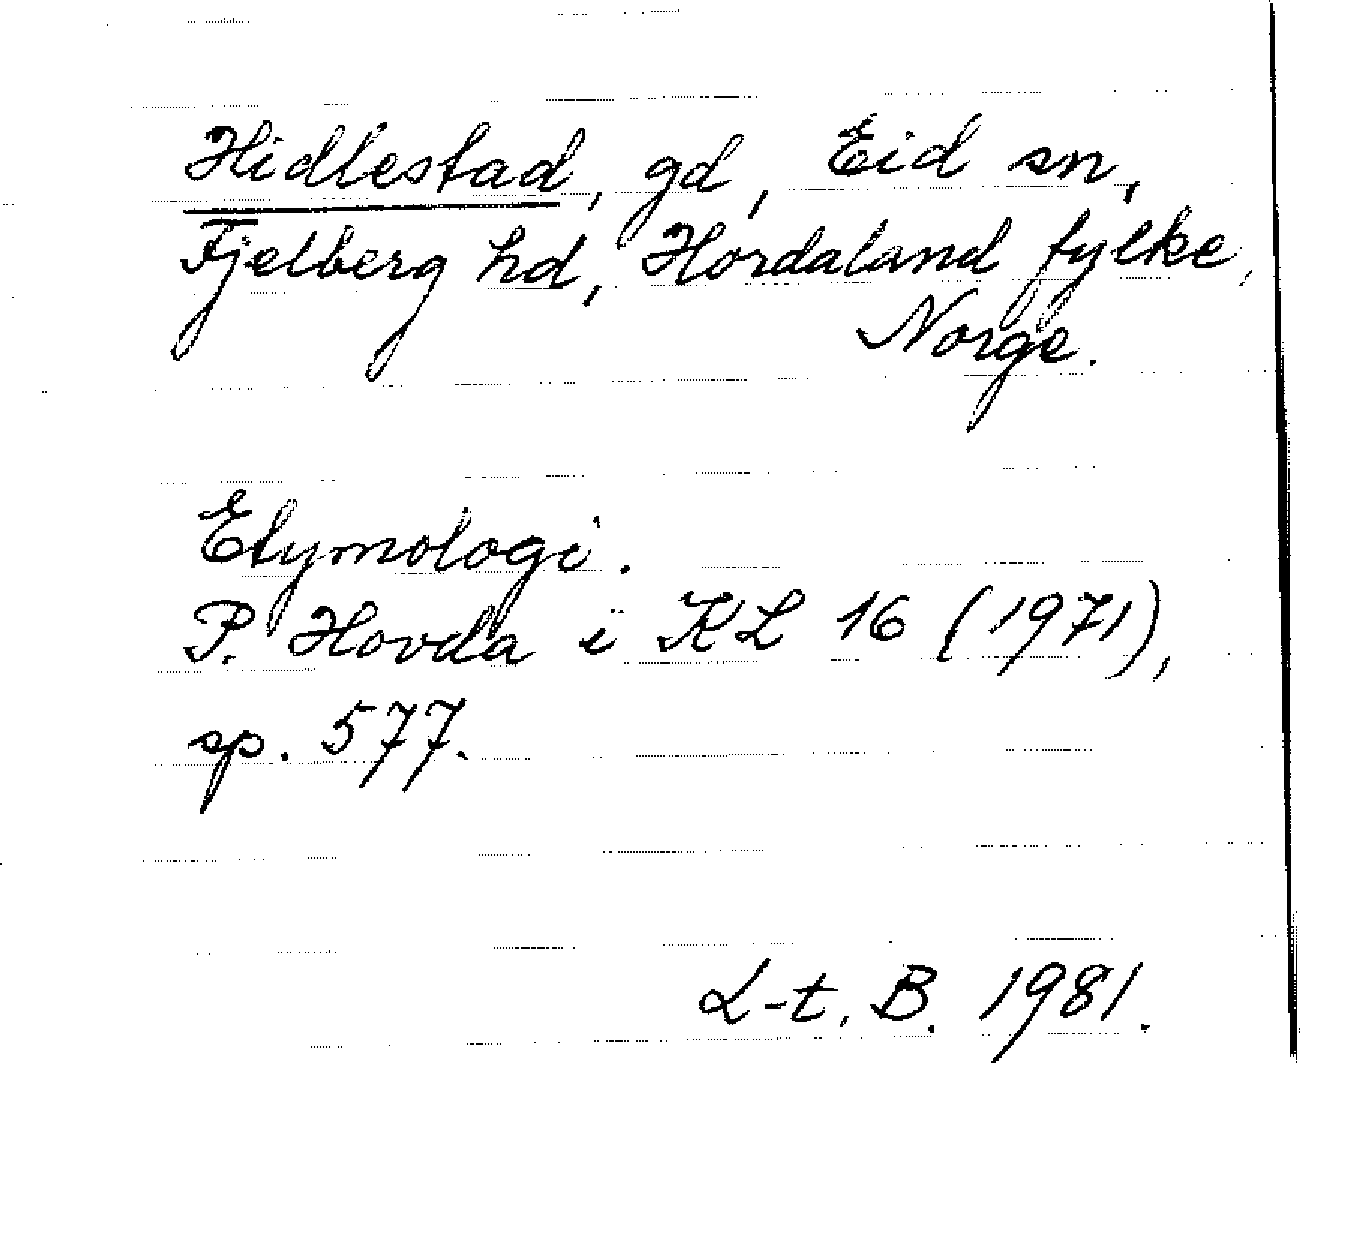 Hidlestad, gd, Eid sn,
Fjelberg hd, Hordaland fylke,
Norge.
Etymologi.
P. Hovda i KL 16 (1971),
sp. 577.
L-t, B. 1981.